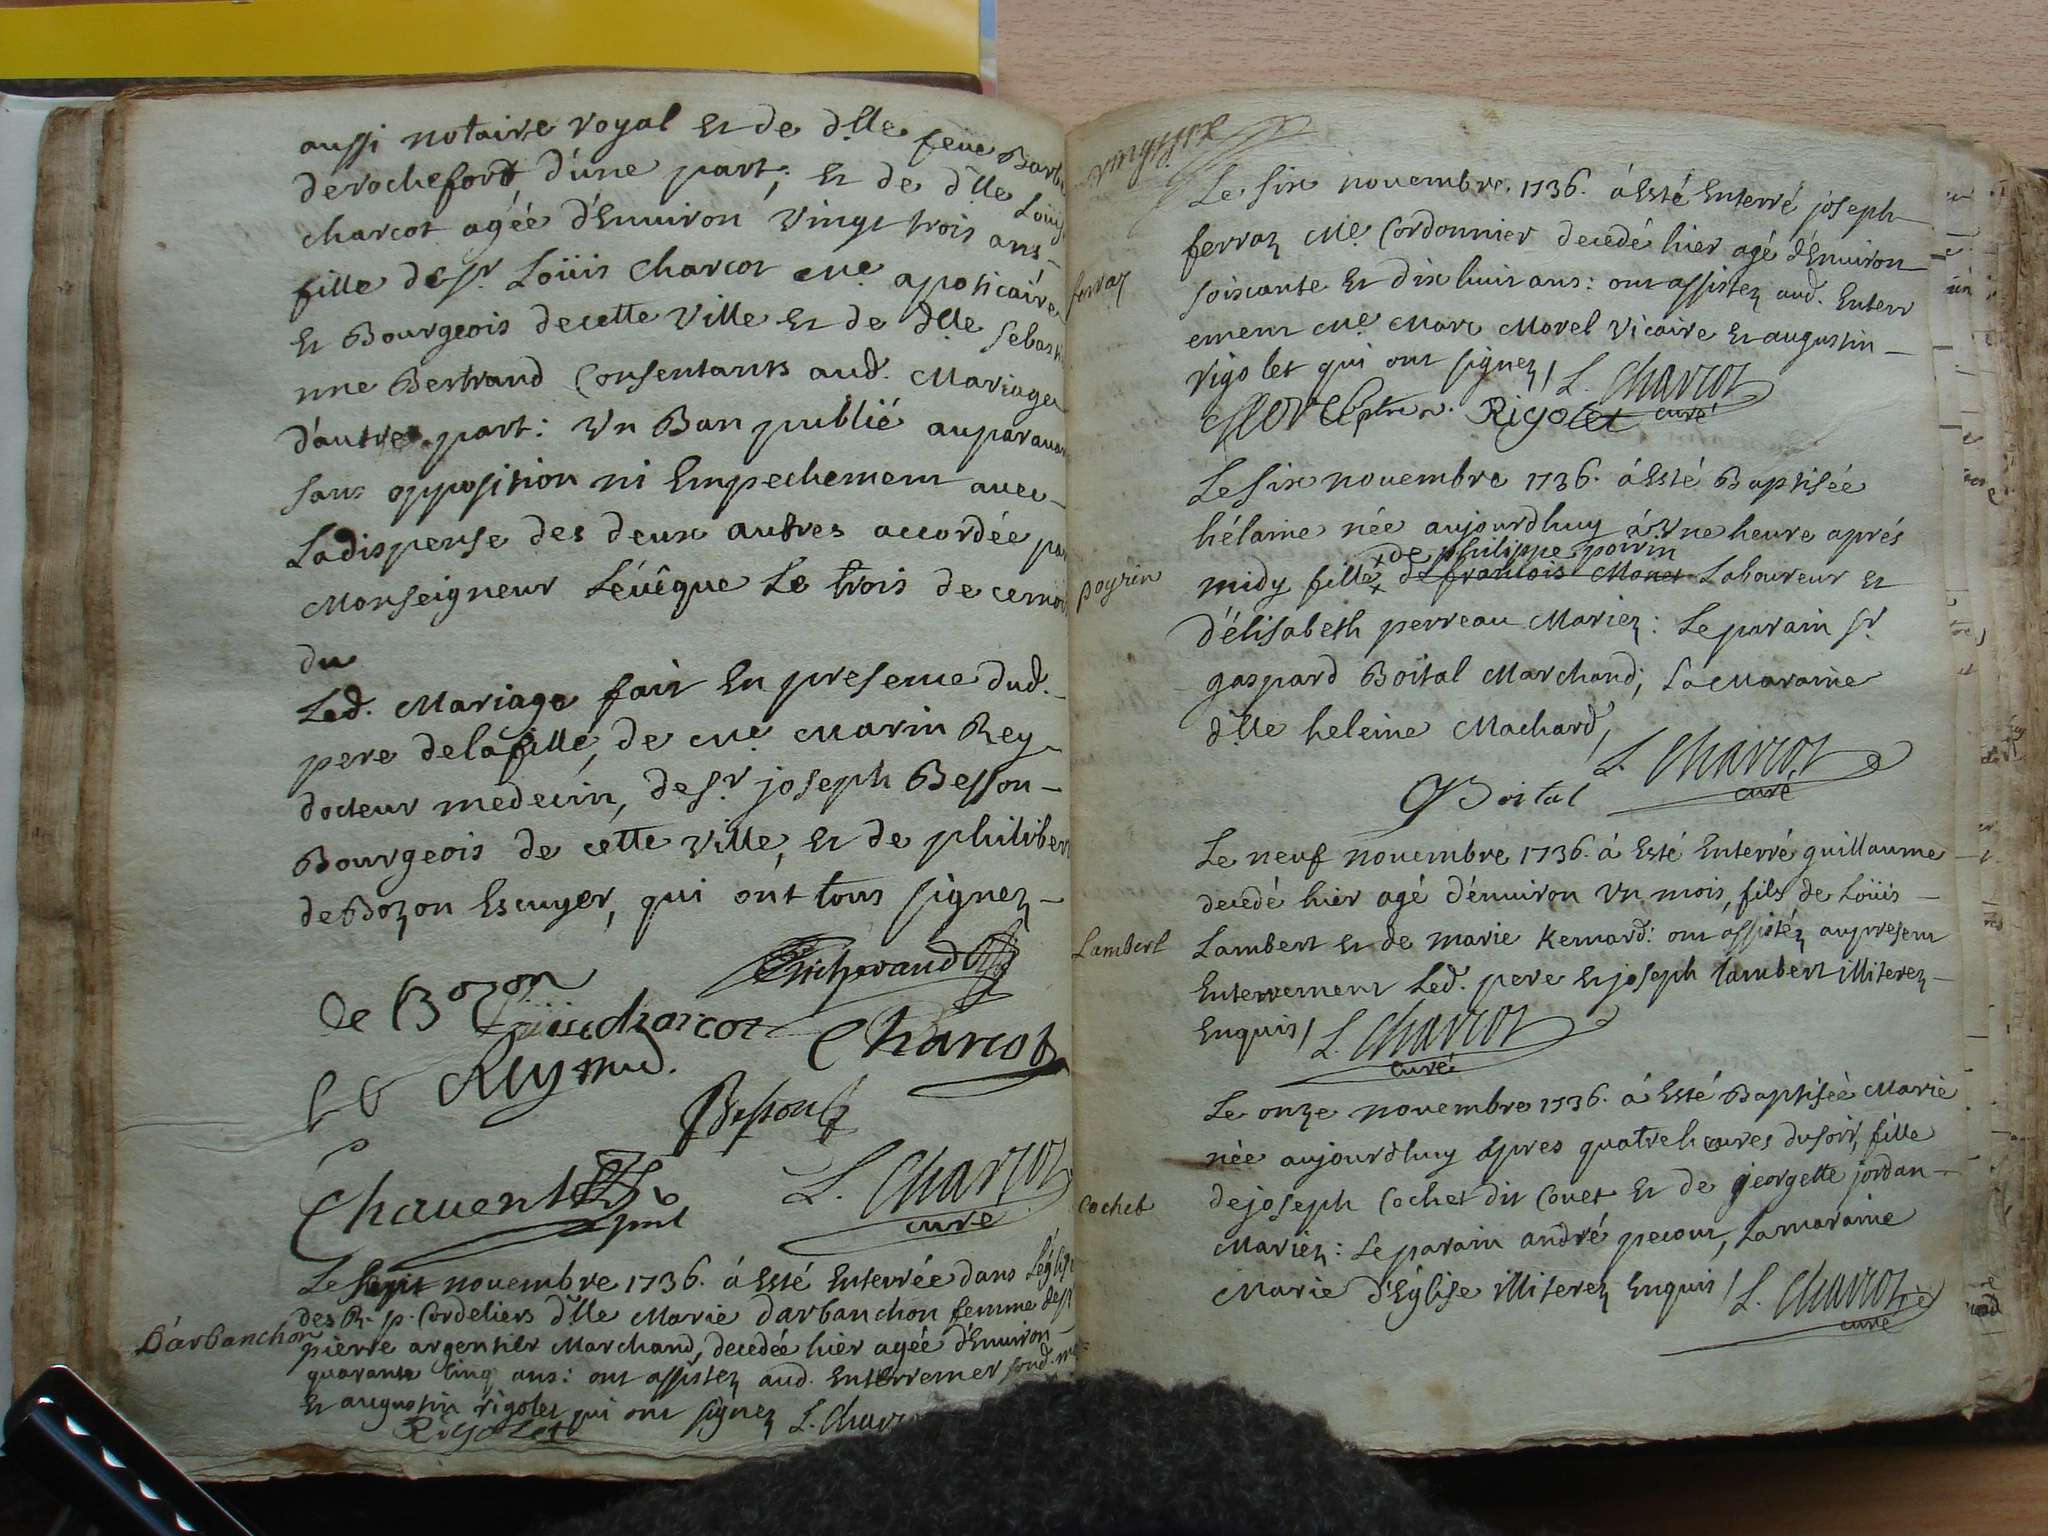 aussi notaire royal et de d.lle feue Barb
derochefort d'une part; et de d.lle Loüis
charcot agée d'Environ vingt trois ans
fille de s.r Loüis Charcot M.e apoticaire
et Bourgeois de cette Ville et de d.lle Sebasti
nne Bertrand Consentants aud. Mariage
d'autre part: Un Ban publié auparavan
sans opposition ni Empechement avec
La dispense des deux autres accordée par
Monseigneur Lévêque Le trois de ce mois
du
Led. Mariage fait En presence dud.
pere de la fille, de M.e Marin Rey
docteur medecin, de s.r joseph Besson
Bourgeois de cette Ville, et de philiber
de Bozon Escuyer, qui ont tous signez
de Bozon
Loüise charcot Charcot
Rey med.
Besson
Chavent
L. Charcot
curé
Darbanchon
Le sept novembre 1736. á Esté Enterrée dans L'églis
des R. p. Cordeliers d.lle Marie darbanchon femme de s.r
pierre argentier Marchand, decedée hier agée d'Environ
quarante Cinq ans: ont assistez aud. Enterremet
et augustin rigolet qui ont signez L. Charcot
Rigolet
Le six novembre 1736. á Esté Enterré joseph
ferraz M.e Cordonnier decedé hier agé d'Environ
ferraz
soixante et dix huit ans: ont assistez aud. Enterr
ement M.e Marc Morel vicaire et augustin
Rigolet qui ont signez / L. Charcot
Morel ptre v. Rigolet curé
Le six novembre 1736. á Esté Baptisée
hélaine née aujourdhuy á Une heure aprés
de philippe poirin
poyrin
midy fille de francois Monet Laboureur et
d'élisabeth perreau Mariez: Le parain s.r
gaspard Boital Marchand; La Maraine
d.lle heleine Machard,
L. Charcot
Boital curé
Le neuf novembre 1736. á Esté Enterré guillaume
decedé hier agé d'énviron Un mois, fils de Loüis
Lambert
Lambert et de marie Kemard: ont assistéz au present
Enterrement Led. pere et joseph lambert illiterez
Enquis / L. Charcot
curé
Le onze novembre 1736. á Esté Baptisée Marie
née aujourdhuy apres quatre heures du soir, fille
cochet
de joseph Cochet dit Covet et de georgette jordan
Mariez: Le parain andré pecout, La maraine
Marie d'Église illiterez Enquis / L. Charcot
curé